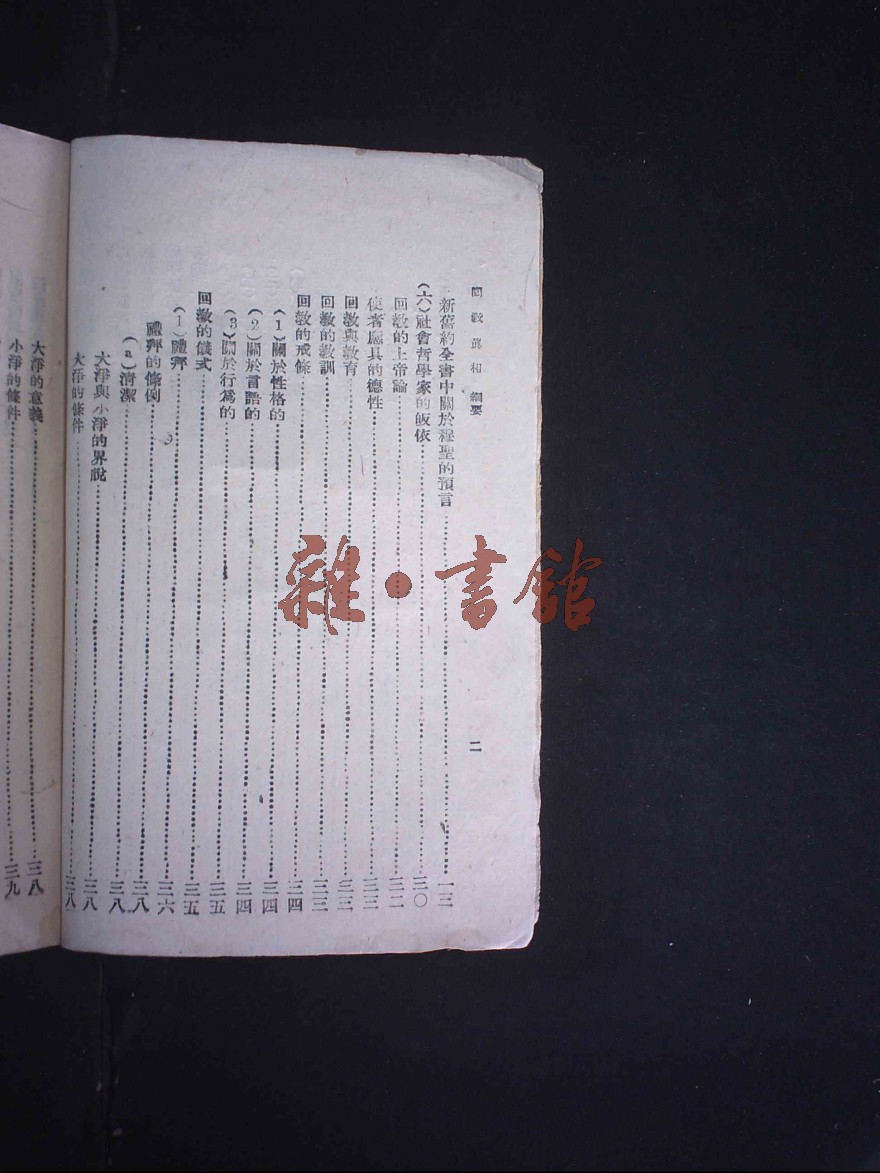 回教真相 綱要
二
新舊約全書中關於穆聖的預言…一三
(六)社會哲學家的皈依…三〇
回教的上帝論…三二
使者應具的德性…三三
回教與教育…三三
回教的教訓…三三
回教的戒條…三四
(1)關於性格的…三四
(2)關於言語的…三四
(3)關於行為的…三五
回教的儀式…三五
(1)禮拜…三六
禮拜的條例…三八
(a)清潔…三八
大淨與小淨的界說…三八
大淨的條件…三八
大淨的意義…三八
小淨的條件…三九
雜·書館